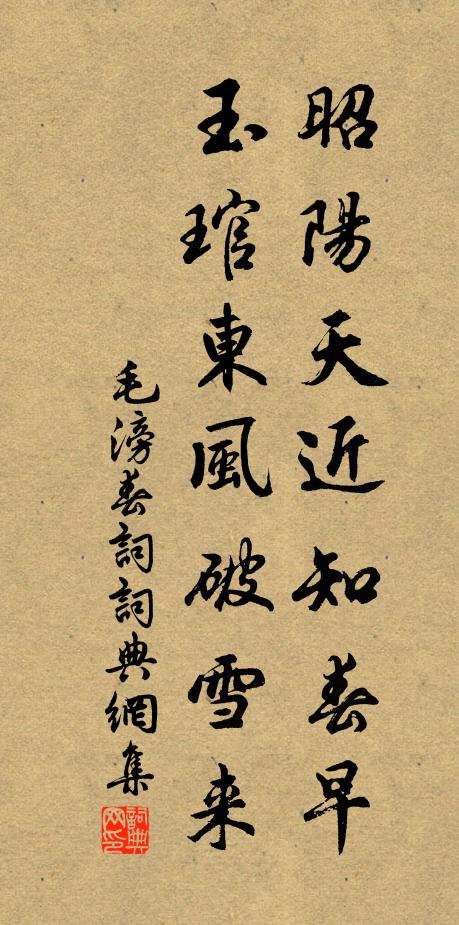 昭陽天近知春早
玉琯東風破雪来
毛滂春詞詞典網集
詞典網印